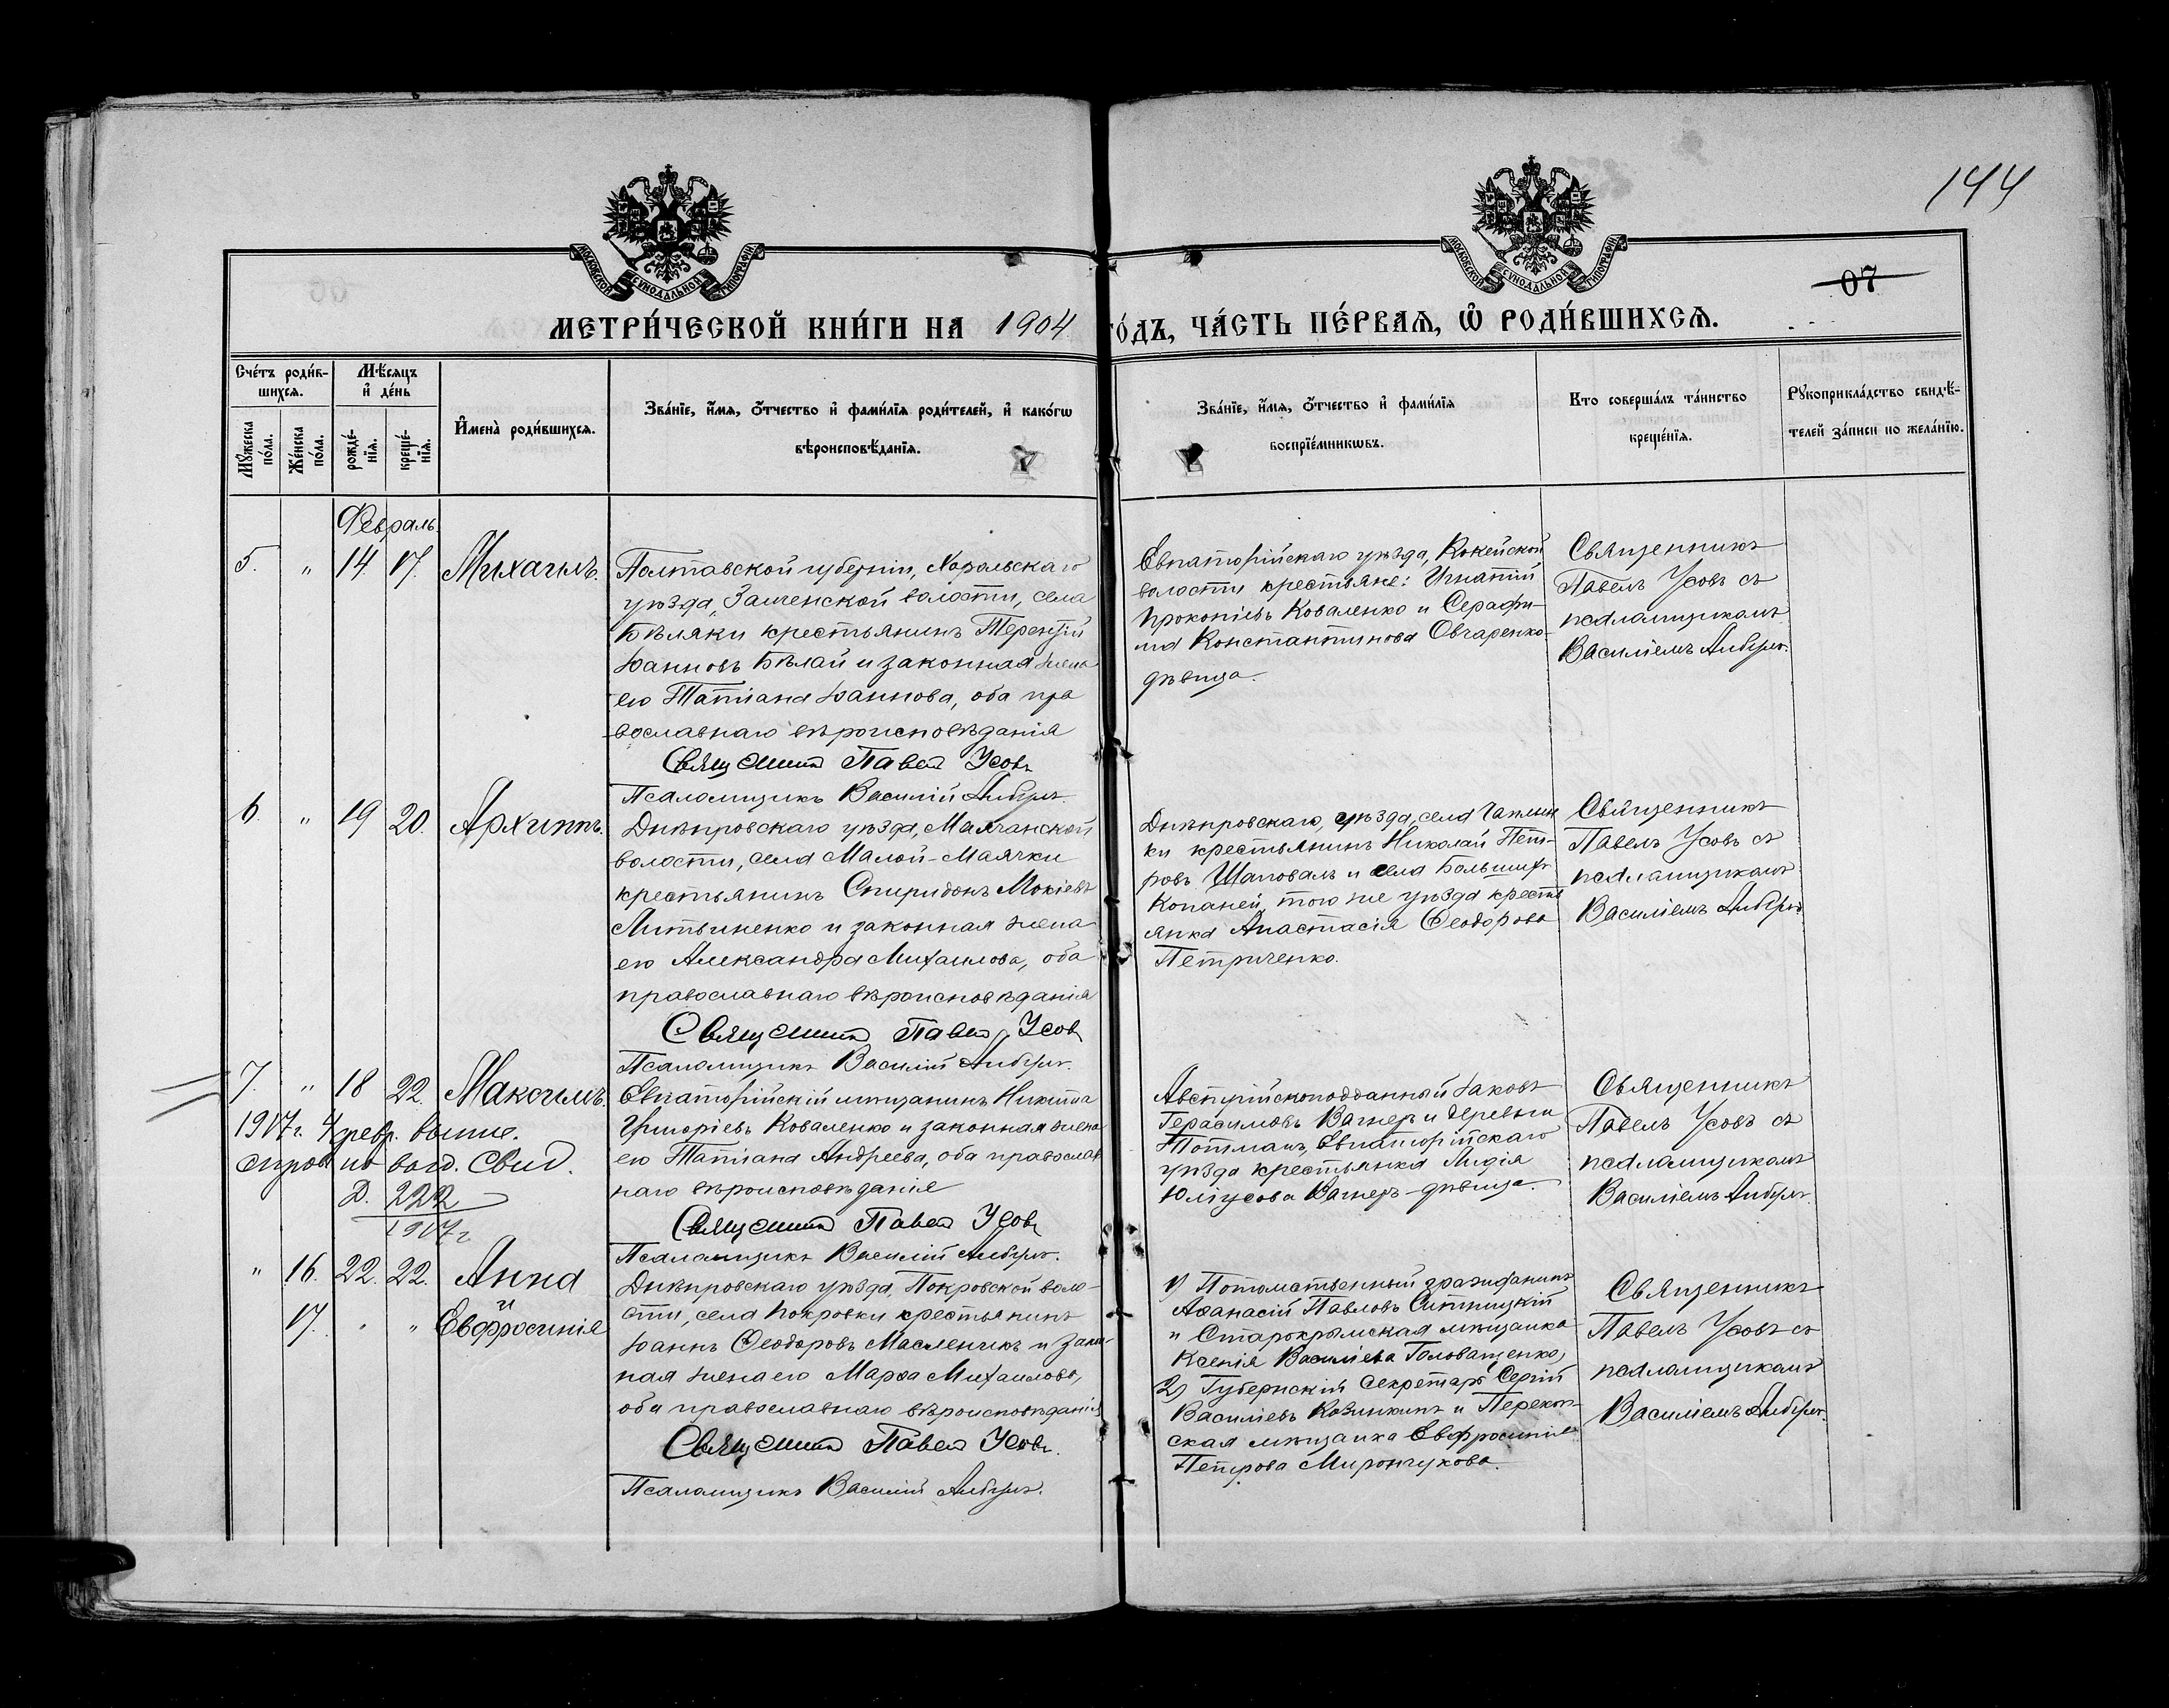 144
07
МОСКОВСКОЙ СУНОДАЛЬНОЙ ТИПОГРАФІИ
МОСКОВСКОЙ СУНОДАЛЬНОЙ ТИПОГРАФІИ
МЕТРИ́ЧЕСКОЙ КНИ́ГИ НА 1904 ГО́ДЪ, ЧА́СТЬ ПЕ́РВАЯ, Ѡ РОДИ́ВШИХСЯ.
Сче́тъ роди́в-
шихся.
Мѣ́сяцъ
и де́нь
Мꙋ́жеска
по́ла.
Же́нска
по́ла.
рожде́-
нїя.
креще́-
нїя.
Имена̀ роди́вшихся.
Зва́нїе, и́мя, о́тчество и фами́лїя роди́телей, и како́гѡ
вѣроисповѣ́данїя.
Зва́нїе, и́мя, о́тчество и фами́лїя
воспрїе́мникѡвъ.
Кто соверша́лъ та́инство
креще́нїя.
Рꙋкоприкла́дство свидѣ́-
телей за́писи по жела́нїю.
Февраль.
5. " 14. 17. Михаилъ.
Полтавской губерніи, Хорольскаго
уѣзда, Заиченской волости, села
Бѣляки крестьянинъ Терентій
Іоанновъ Бѣлай и законная жена
его Татіана Іоаннова, оба пра
вославнаго вѣроисповѣданія
Священникъ Павелъ Усовъ
Псаломщикъ Василій
Евпаторійскаго уѣзда, Кокейской
волости крестьяне: Игнатій
Прокопіевъ Коваленко и Серафи-
ма Константинова Овчаренко-
дѣвица.
Священникъ
Павелъ Усовъ съ
псаломщикомъ
Василіемъ
6. " 19 20. Архиппъ.
Днѣпровскаго уѣзда, Маячанской
волости, села Малой-Маячки
крестьянинъ Спиридонъ Мокіевъ
Литвиненко и законная жена
его Александра Михаилова, оба
православнаго вѣроисповѣданія
Священникъ Павелъ Усовъ
Псаломщикъ Василій
Днѣпровскаго, уѣзда, села
ки крестьянинъ Николай Пет-
ровъ Шаповалъ и села Большихъ
Копаней, того же уѣзда кресть
янка Анастасія Ѳеодорова
Петриченко.
Священникъ
Павелъ Усовъ съ
псаломщикомъ
Василіемъ
7. " 18 22. Максимъ.
1917 г. 4 февр. выпис.
по Свид.
Д. 222
1917 г.
Евпаторійскій мѣщанинъ Никита
Григоріевъ Коваленко и законная жена
его Татіана Андреева, оба православ
наго вѣроисповѣданія
Священникъ Павелъ Усовъ
Псаломщикъ Василій
Австрійскоподданный Іаковъ
Герасимовъ Вагнеръ и деревни
Евпаторійскаго
уѣзда крестьянка Лидія
Юліусова Вагнеръ-дѣвица.
Священникъ
Павелъ Усовъ съ
псаломщикомъ
Василіемъ
" 16. 22. 22. Анна
и
17. " " Евфросинія
Днѣпровскаго уѣзда, Покровской воло-
сти, села Покровки крестьянинъ
Іоаннъ Ѳеодоровъ Масленикъ и закон-
ная жена его Марѳа Михаилова,
оба православнаго вѣроисповѣданія
Священникъ Павелъ Усовъ.
Псаломщикъ Василій
1) Потомственный гражданинъ
Аѳанасій Павловъ Ситницкій
и Старокрымская мѣщанка
Ксенія Василіева Головащенко,
2) Губернскій секретарь Сергій
Василіевъ Ковинкинъ и Перекоп-
ская мѣщанка Евфросинія
Петрова Мирончукова.
Священникъ
Павелъ Усовъ съ
псаломщикомъ
Василіемъ